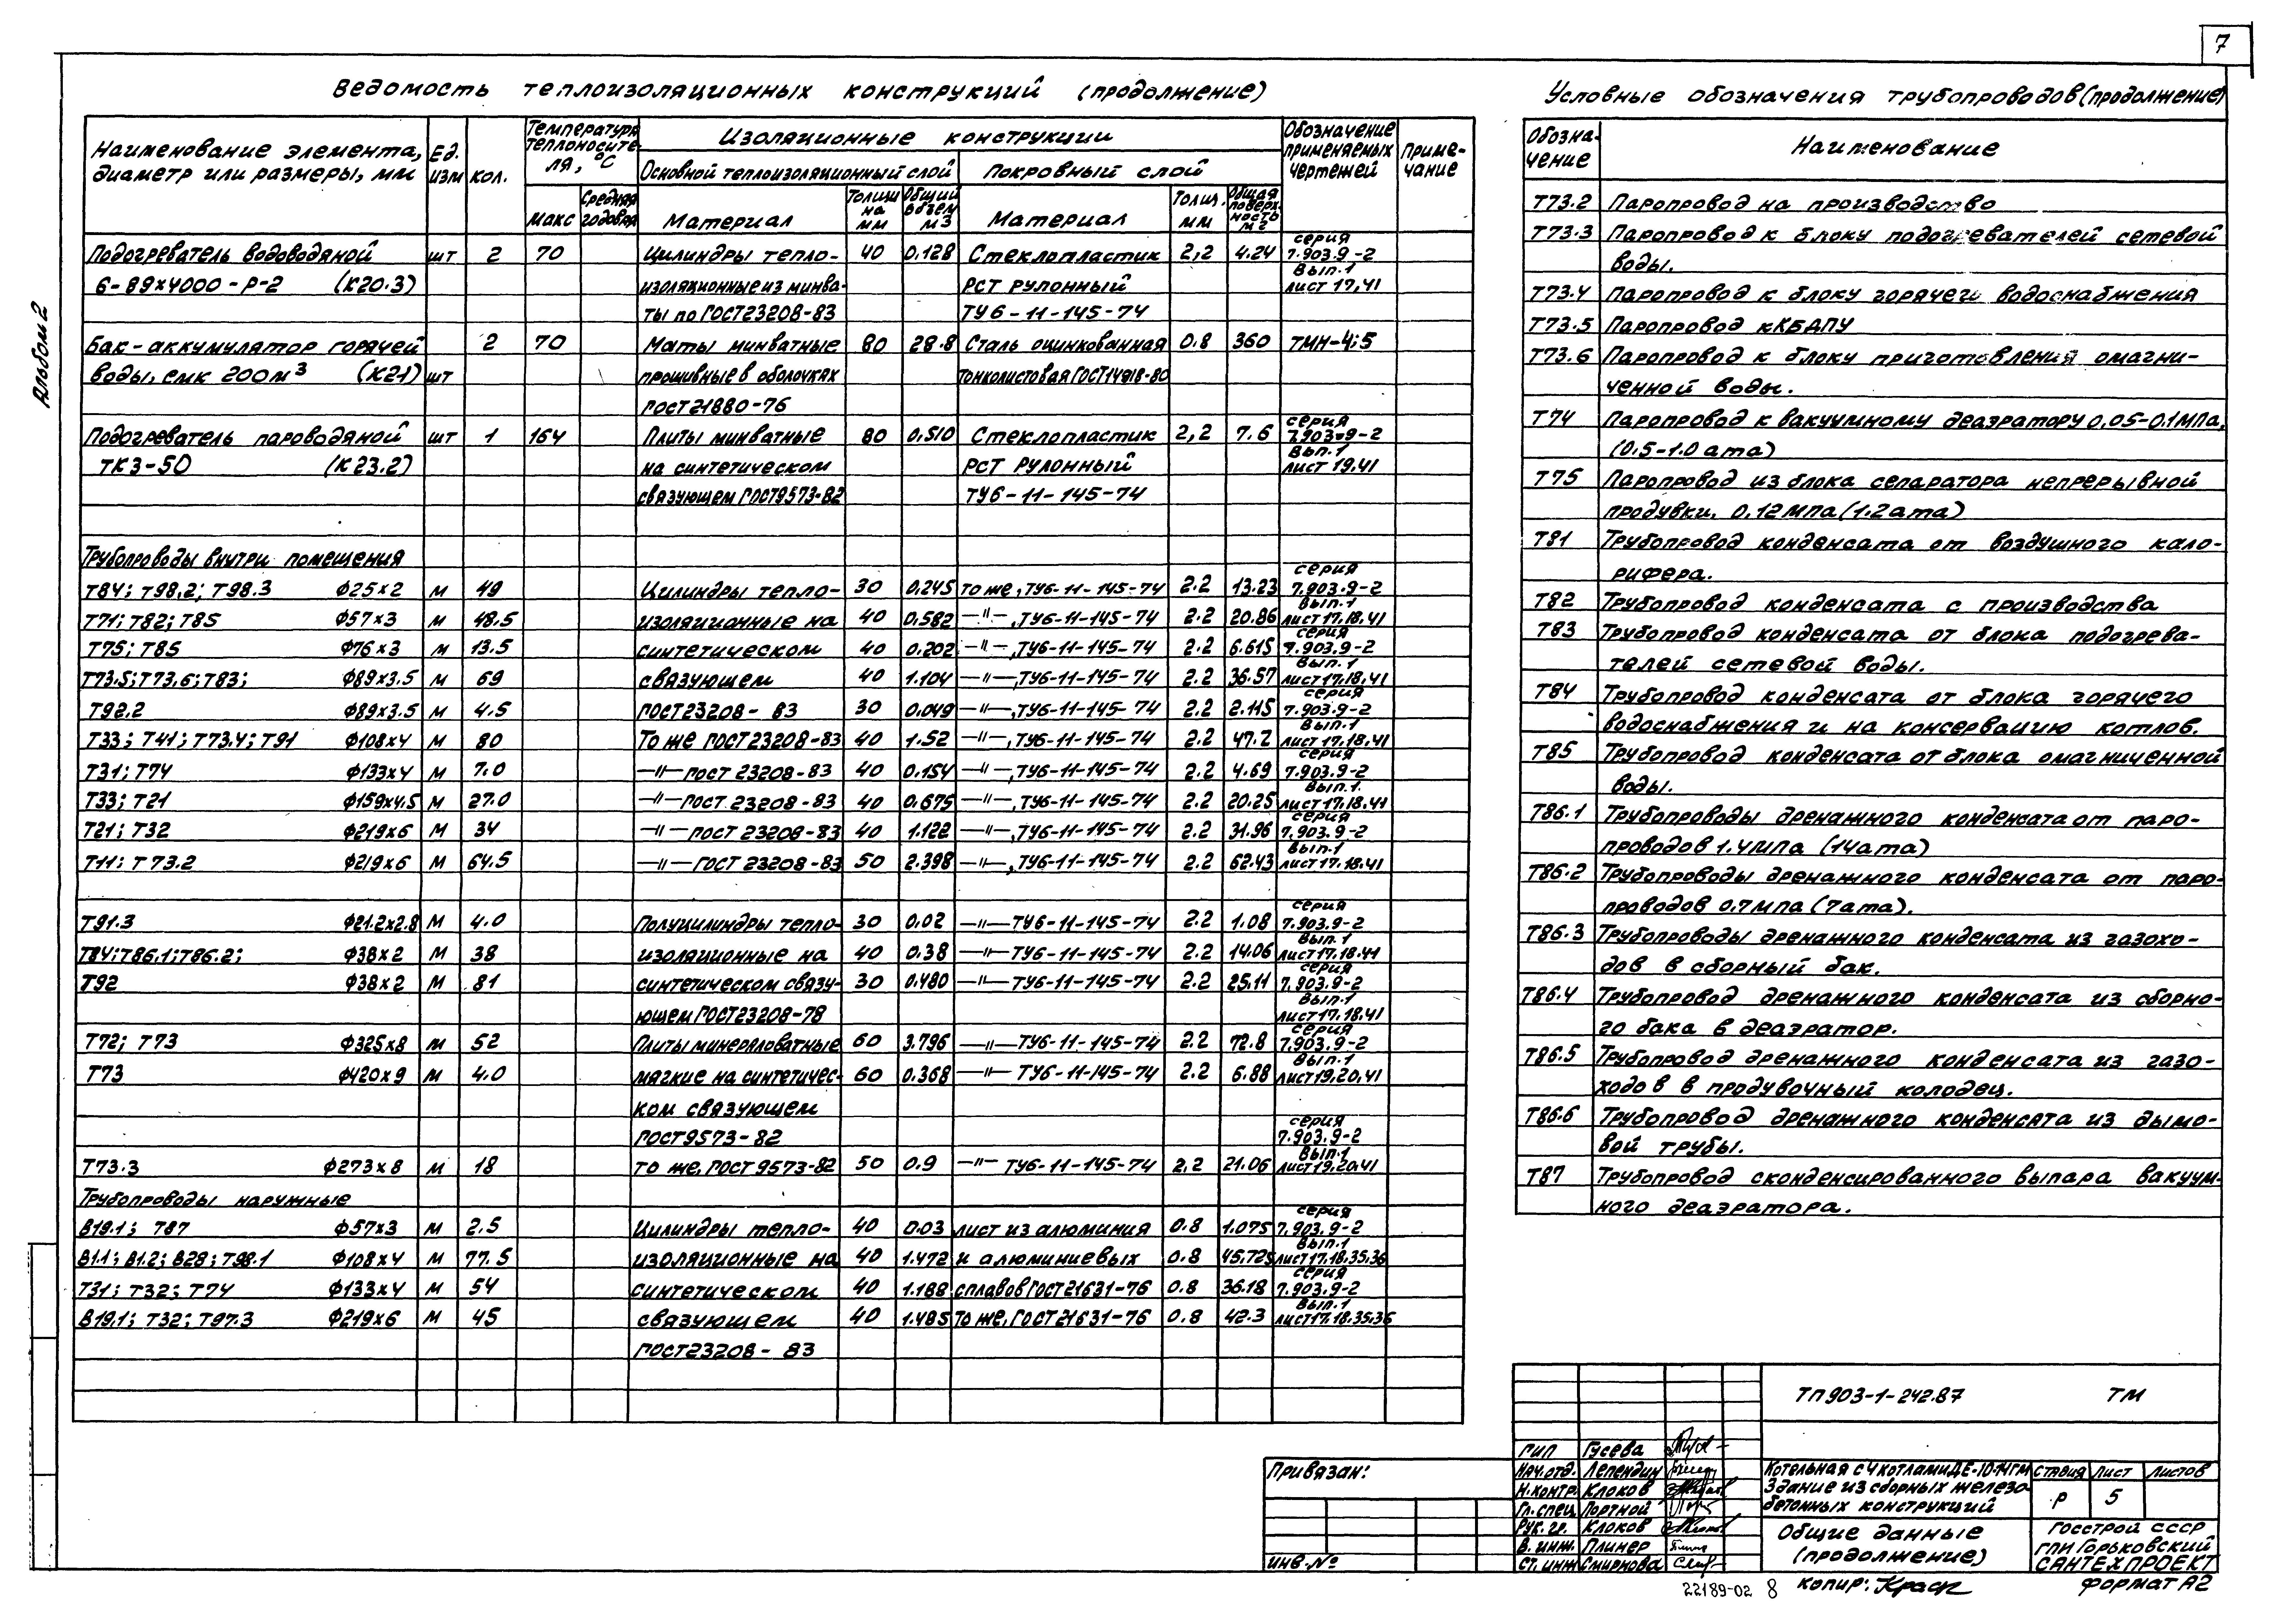 7
Альбом 2
Ведомость теплоизоляционных конструкций (продолжение)
Наименование элемента, диаметр или размеры, мм | Ед. изм | кол. | Температура теплоносителя, °С | Изоляционные конструкции | Обозначение применяемых чертежей | Примечание
Основной теплоизоляционный слой | Покровный слой
макс | Средняя годовая | Материал | Толщина мм | Общий объем м3 | Материал | Толщ. мм | Общая поверхность м2
Подогреватель водоводяной | шт | 2 | 70 | Цилиндры тепло- | 40 | 0.128 | Стеклопластик | 2,2 | 4.24 | серия 7.903.9-2
6-89х4000-Р-2 (К20.3) | изоляционные из минва- | РСТ рулонный | Вып.1 лист 17,41
ты по ГОСТ23208-83 | ТУ6-11-145-74
Бак-аккумулятор горячей | 2 | 70 | Маты минватные | 80 | 28.8 | Сталь оцинкованная | 0.8 | 360 | ТМН-4;5
воды, емк 200м³ (К21) | шт | прошивные в оболочках | тонколистовая ГОСТ14918-80
ГОСТ21880-76
Подогреватель пароводяной | шт | 1 | 164 | Плиты минватные | 80 | 0.510 | Стеклопластик | 2,2 | 7.6 | серия 7.903.9-2
ТКЗ-50 (К23.2) | на синтетическом | РСТ рулонный | Вып.1 лист 19.41
связующем ГОСТ9573-82 | ТУ6-11-145-74
Трубопроводы внутри помещения
Т84; Т98.2; Т98.3 ф25х2 | м | 49 | Цилиндры тепло- | 30 | 0.245 | то же, ТУ6-11-145-74 | 2.2 | 13.23 | серия 7.903.9-2
Т71; Т82; Т85 ф57х3 | м | 48.5 | изоляционные на | 40 | 0.582 | —"—, ТУ6-11-145-74 | 2.2 | 20.86 | Вып.1 лист17.18.41
Т75; Т85 ф76х3 | м | 13.5 | синтетическом | 40 | 0.202 | —"—, ТУ6-11-145-74 | 2.2 | 6.615 | серия 7.903.9-2
Т73.5; Т73.6; Т83; ф89х3.5 | м | 69 | связующем | 40 | 1.104 | —"—, ТУ6-11-145-74 | 2.2 | 36.57 | Вып.1 лист17.18.41
Т92.2 ф89х3.5 | м | 4.5 | ГОСТ23208-83 | 30 | 0.049 | —"—, ТУ6-11-145-74 | 2.2 | 2.115 | серия 7.903.9-2
Т33; Т41; Т73.4; Т91 ф108х4 | м | 80 | То же ГОСТ23208-83 | 40 | 1.52 | —"—, ТУ6-11-145-74 | 2.2 | 47.2 | Вып.1 лист17.18.41
Т31; Т74 ф133х4 | м | 7.0 | —"— ГОСТ 23208-83 | 40 | 0.154 | —"—, ТУ6-11-145-74 | 2.2 | 4.69 | серия 7.903.9-2
Т33; Т21 ф159х4.5 | м | 27.0 | —"— ГОСТ 23208-83 | 40 | 0.675 | —"—, ТУ6-11-145-74 | 2.2 | 20.25 | Вып.1. лист17.18.41
Т21; Т32 ф219х6 | м | 34 | —"— ГОСТ 23208-83 | 40 | 1.122 | —"—, ТУ6-11-145-74 | 2.2 | 31.96 | серия 7.903.9-2
Т11; Т73.2 ф219х6 | м | 64.5 | —"— ГОСТ 23208-83 | 50 | 2.398 | —"—, ТУ6-11-145-74 | 2.2 | 62.43 | Вып.1 лист17.18.41
Т91.3 ф21.2х2.8 | м | 4.0 | Полуцилиндры тепло- | 30 | 0.02 | —"— ТУ6-11-145-74 | 2.2 | 1.08 | серия 7.903.9-2
Т84; Т86.1; Т86.2; ф38х2 | м | 38 | изоляционные на | 40 | 0.38 | —"— ТУ6-11-145-74 | 2.2 | 14.06 | Вып.1 лист17.18.41
Т92 ф38х2 | м | 81 | синтетическом связу- | 30 | 0.480 | —"— ТУ6-11-145-74 | 2.2 | 25.11 | серия 7.903.9-2
ющем ГОСТ23208-78 | Вып.1 лист17.18.41
Т72; Т73 ф325х8 | м | 52 | Плиты минераловатные | 60 | 3.796 | —"— ТУ6-11-145-74 | 2.2 | 72.8 | серия 7.903.9-2
Т73 ф420х9 | м | 4.0 | мягкие на синтетичес- | 60 | 0.368 | —"— ТУ6-11-145-74 | 2.2 | 6.88 | Вып.1 лист19.20.41
ком связующем
ГОСТ9573-82 | серия 7.903.9-2
Т73.3 ф273х8 | м | 18 | то же, ГОСТ 9573-82 | 50 | 0.9 | —"— ТУ6-11-145-74 | 2,2 | 21.06 | Вып.1 лист19.20.41
Трубопроводы наружные
В19.1; Т87 ф57х3 | м | 2.5 | Цилиндры тепло- | 40 | 0.03 | лист из алюминия | 0.8 | 1.075 | серия 7.903.9-2
В1.1; В1.2; В28; Т98.1 ф108х4 | м | 77.5 | изоляционные на | 40 | 1.472 | и алюминиевых | 0.8 | 45.725 | Вып.1 лист17.18.35.36
Т31; Т32; Т74 ф133х4 | м | 54 | синтетическом | 40 | 1.188 | сплавов ГОСТ21631-76 | 0.8 | 36.18 | серия 7.903.9-2
В19.1; Т32; Т97.3 ф219х6 | м | 45 | связующем | 40 | 1.485 | то же, ГОСТ21631-76 | 0.8 | 42.3 | Вып.1 лист17.18.35.36
ГОСТ23208-83
Условные обозначения трубопроводов (продолжение)
Обозна-чение | Наименование
Т73.2 | Паропровод на производство
Т73.3 | Паропровод к блоку подогревателей сетевой
воды.
Т73.4 | Паропровод к блоку горячего водоснабжения
Т73.5 | Паропровод к КБДПУ
Т73.6 | Паропровод к блоку приготовления омагни-
ченной воды.
Т74 | Паропровод к вакуумному деаэратору 0,05-0.1МПа,
(0.5-1.0 ата)
Т75 | Паропровод из блока сепаратора непрерывной
продувки. 0.12МПа (1.2ата)
Т81 | Трубопровод конденсата от воздушного кало-
рифера.
Т82 | Трубопровод конденсата с производства
Т83 | Трубопровод конденсата от блока подогрева-
телей сетевой воды.
Т84 | Трубопровод конденсата от блока горячего
водоснабжения и на консервацию котлов.
Т85 | Трубопровод конденсата от блока омагниченной
воды.
Т86.1 | Трубопроводы дренажного конденсата от паро-
проводов 1.4МПа (14ата)
Т86.2 | Трубопроводы дренажного конденсата от паро-
проводов 0.7МПа (7ата).
Т86.3 | Трубопроводы дренажного конденсата из газохо-
дов в сборный бак.
Т86.4 | Трубопровод дренажного конденсата из сборно-
го бака в деаэратор.
Т86.5 | Трубопровод дренажного конденсата из газо-
ходов в продувочный колодец.
Т86.6 | Трубопровод дренажного конденсата из дымо-
вой трубы.
Т87 | Трубопровод сконденсированного выпара вакуум-
ного деаэратора.
ТП 903-1-242.87 ТМ
Привязан:
инв. №
ГИП Гусева
Нач.отд. Лепендин
Н.контр. Клоков
Гл.спец. Портной
Рук. гр. Клоков
В. инж. Плинер
Ст. инж Смирнова
Котельная с 4 котлами ДЕ-10-14ГМ
Здание из сборных железо
бетонных конструкций
Стадия Лист Листов
Р 5
Общие данные
(продолжение)
Госстрой СССР
ГПИ Горьковский
САНТЕХПРОЕКТ
22189-02 8
копир: Краск
формат А2